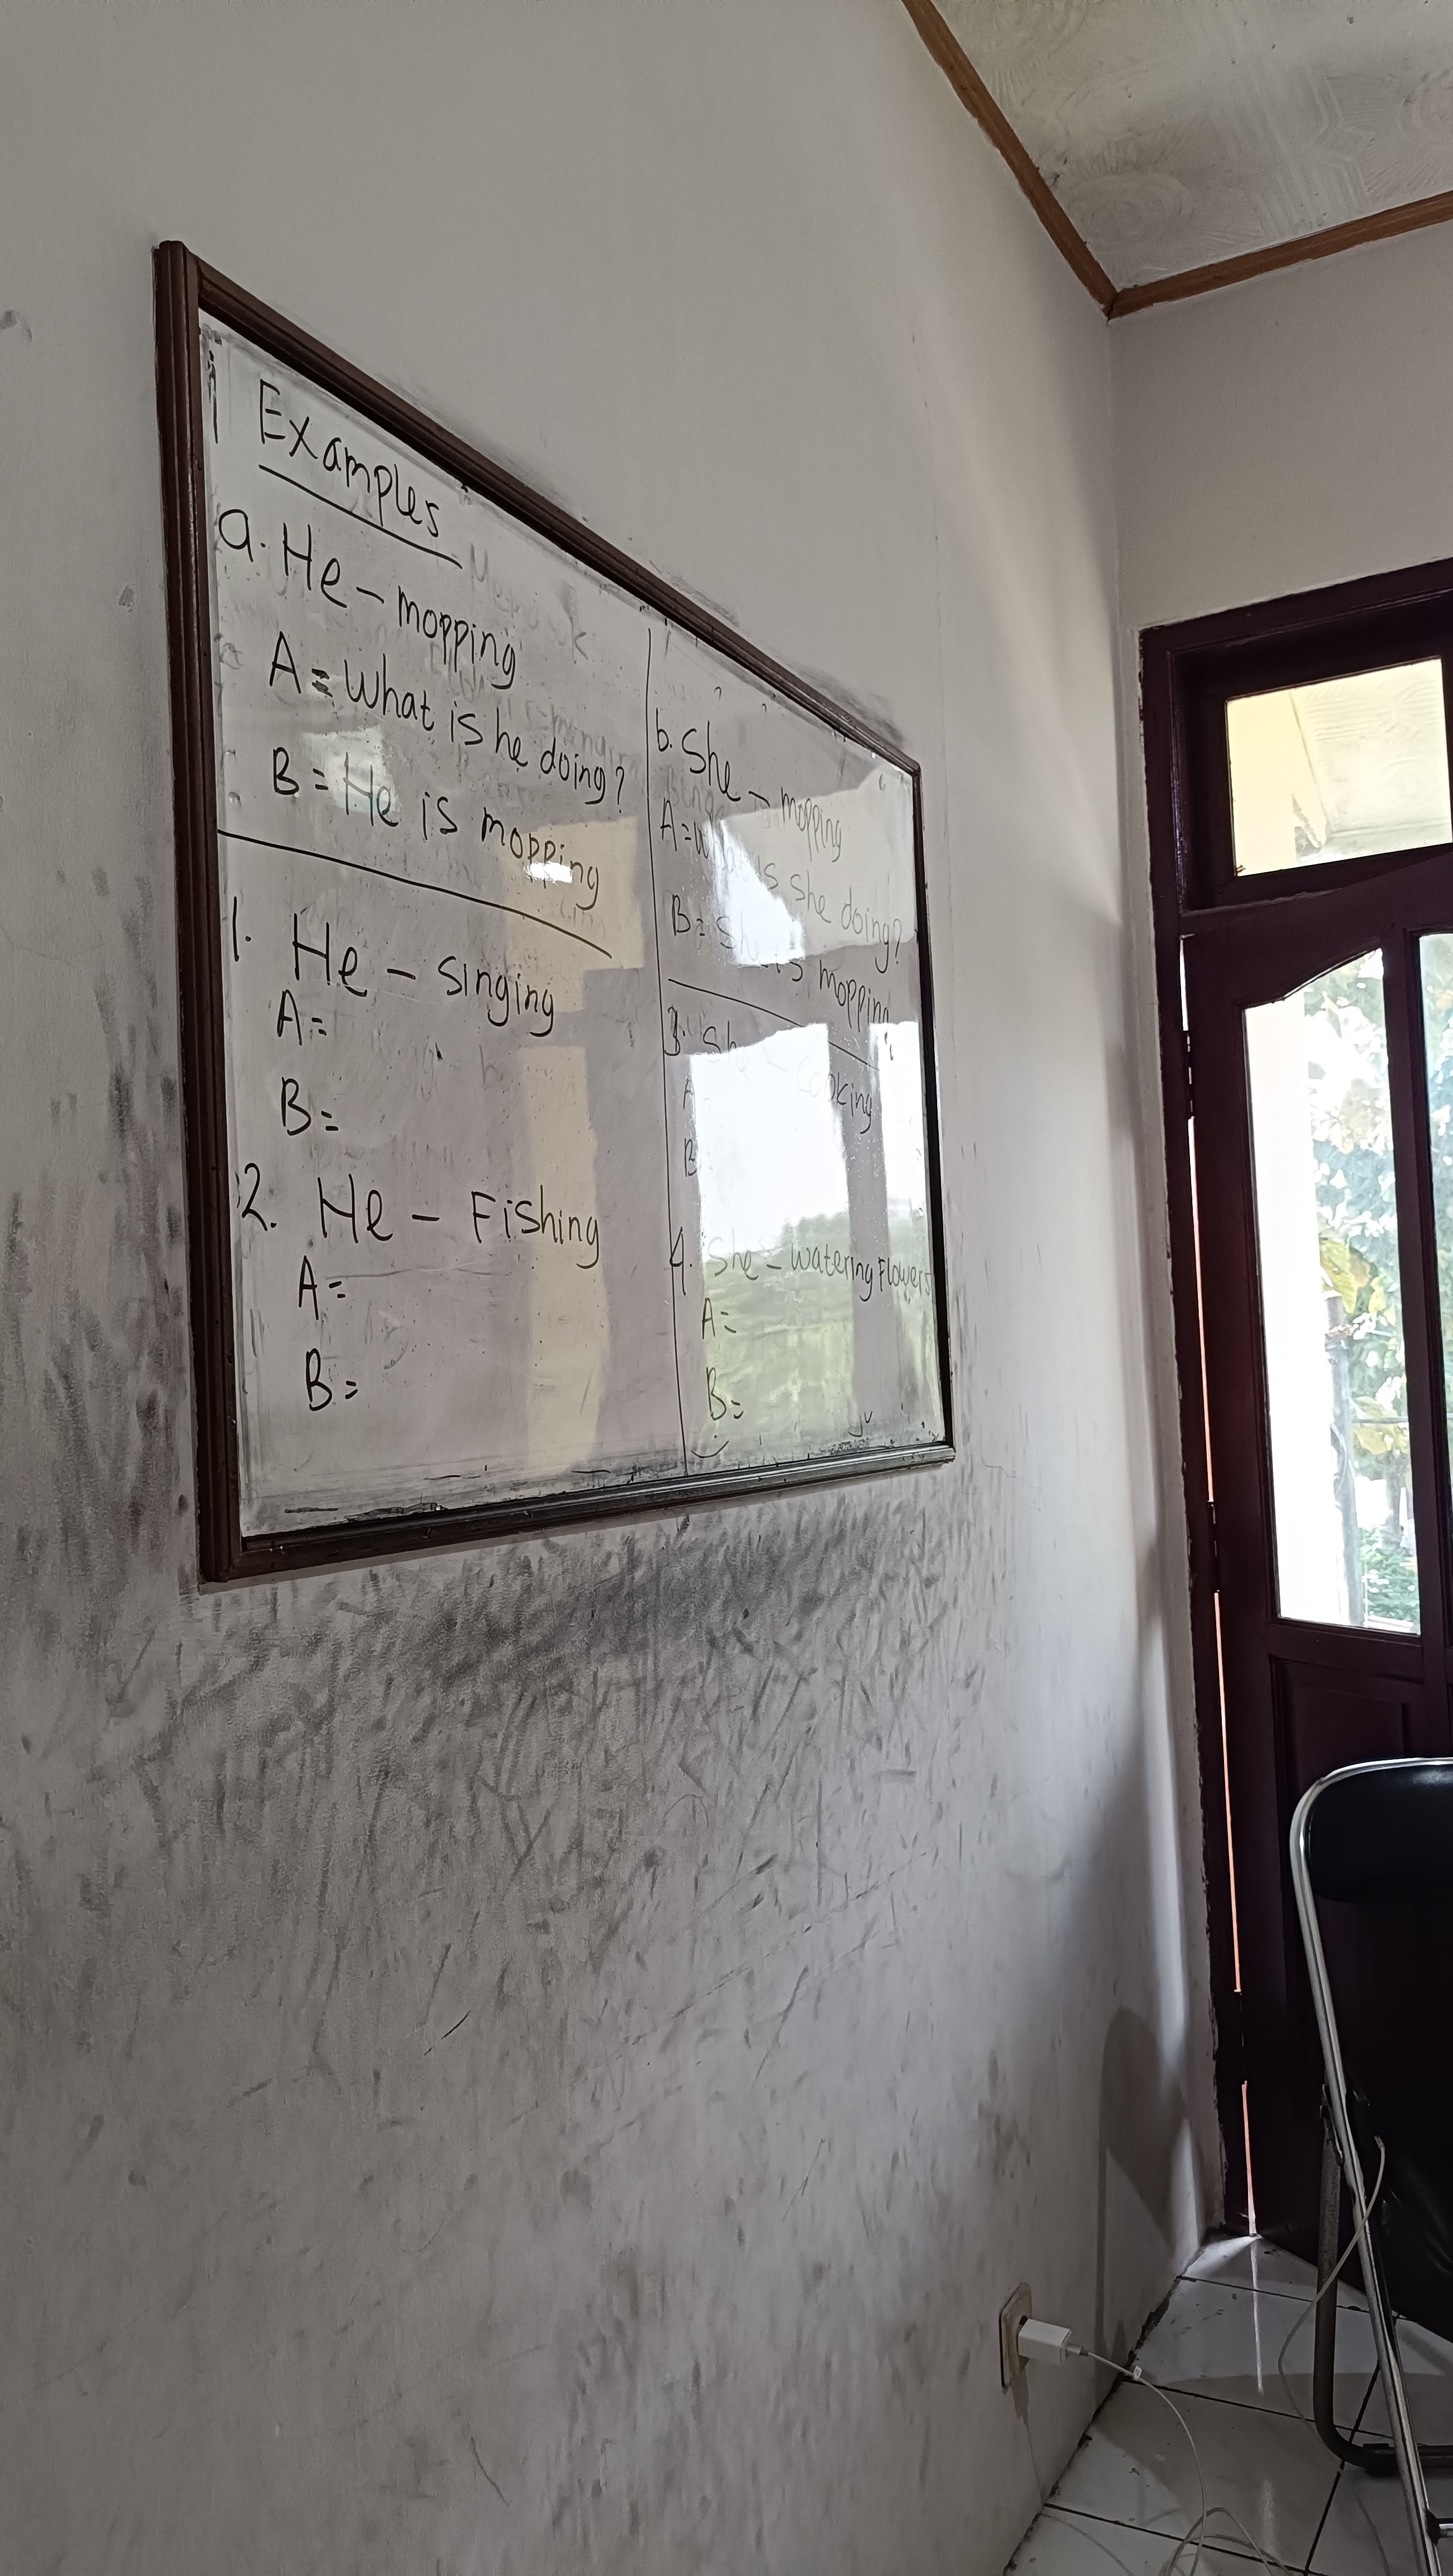 Examples
a. He - mopping
A = What is he doing?
B = He is mopping
1. He - singing
A =
B =
2. He - Fishing
A =
B =
b. She - mopping
A = What is she doing?
B = She is mopping
3. She - Cooking
A
B
4. She - Watering Flowers
A =
B =